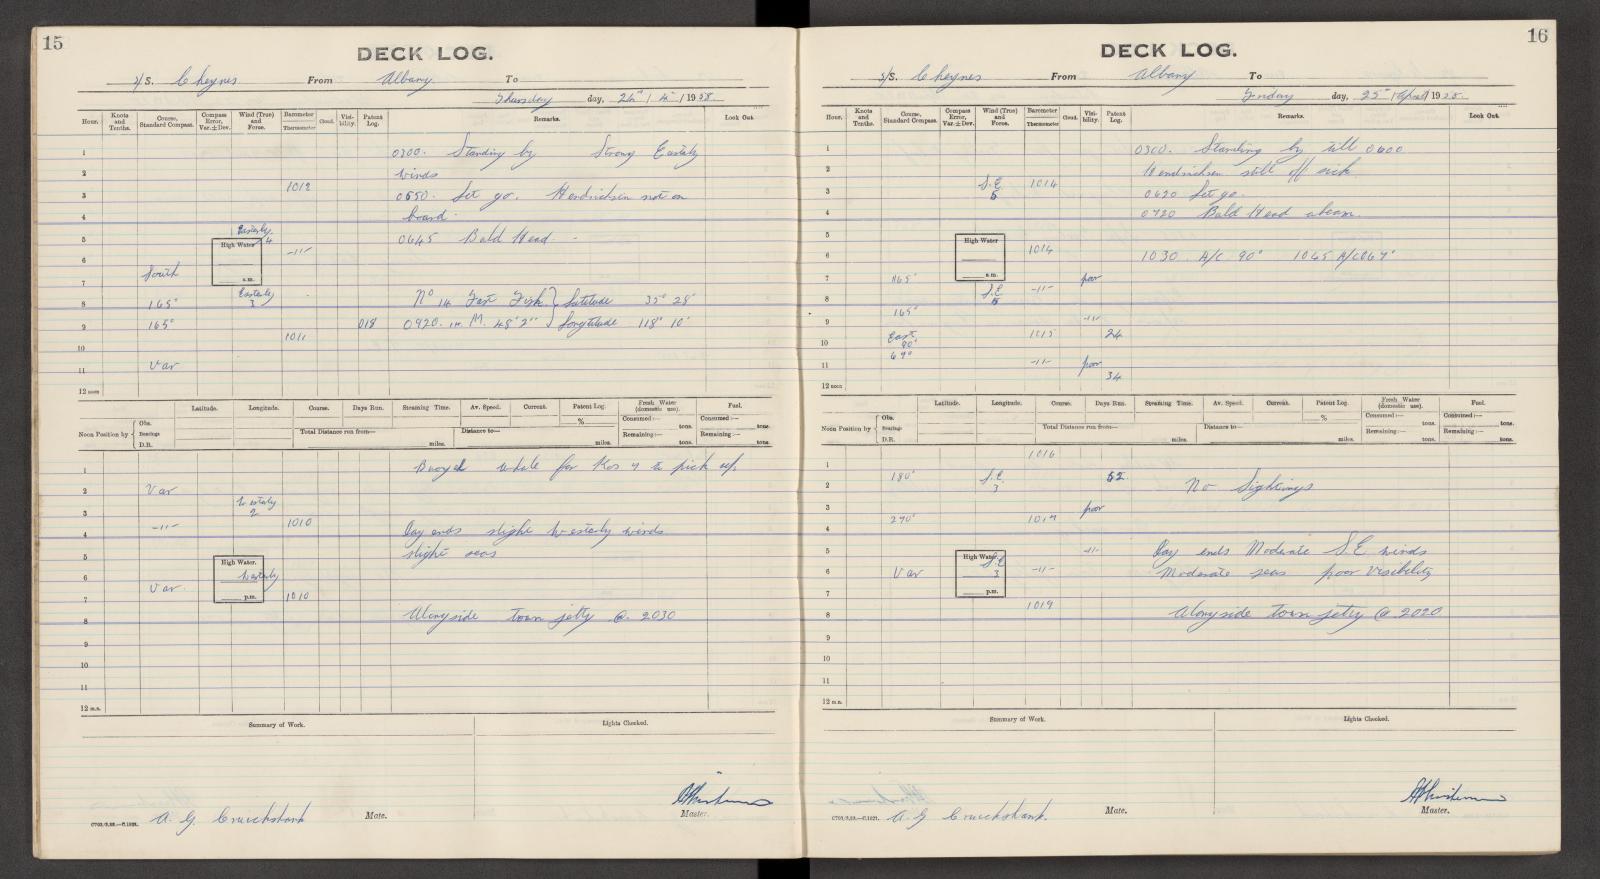 15
DECK LOG.
S/S. Cheynes From Albany To
Thursday day, 24" / 4" / 1958.
Hour. Knots and Tenths. Course, Standard Compass. Compass Error, Var. ± Dev. Wind (True) and Force. Barometer Thermometer Cloud. Visibility. Patent Log. Remarks. Look Out.
1 0300. Standing by Strong Easterly
2 winds
3 1012 0550. Let go. Hendrichsen not on
4 board.
Easterly 4
5 High Water 0645 Bald Head. -
6 -11-
South a.m.
7
8 165° Easterly 3 No 14 Fast Fish } Latitude 35° 28'
9 165° 018 0920. M. 48' 2" } Longtitude 118° 10'
10 1011
11 Var
12 noon
Latitude. Longitude. Course. Days Run. Steaming Time. Av. Speed. Current. Patent Log. Fresh Water (domestic use). Fuel.
Noon Position by { Obs. Bearings D.R. Total Distance run from— miles. Distance to— miles. % Consumed:— tons. Remaining:— tons. Consumed:— tons. Remaining:— tons.
1 Buoyed whale for Kos 7 to pick up.
2 Var
3 Westerly 2
4 -11- 1010 Day ends slight Westerly winds
5 High Water. slight seas
6 Westerly
7 Var. p.m. 1010
8 Alongside town jetty @ 2030
9
10
11
12 m.n.
Summary of Work. Lights Checked.
A. G. Cruickshank Mate. Master.
C702/3.53.—C.1021.
16
DECK LOG.
S/S. Cheynes From Albany To
Friday day, 25" / April / 1958
Hour. Knots and Tenths. Course, Standard Compass. Compass Error, Var. ± Dev. Wind (True) and Force. Barometer Thermometer Cloud. Visibility. Patent Log. Remarks. Look Out.
1 0300. Standing by till 0600
2 Hendrichsen still off sick.
3 S.E 5 1014 0620 Let go.
4 0720 Bald Head abeam.
5 High Water
6 1014 1030 A/C 90° 1045 A/C 067°
7 165° a.m. poor
8 S.E 5 -11-
9 165° -11-
10 East 90° 1015 24
11 67° -11- poor
12 noon 34
Latitude. Longitude. Course. Days Run. Steaming Time. Av. Speed. Current. Patent Log. Fresh Water (domestic use). Fuel.
Noon Position by { Obs. Bearings D.R. Total Distance run from— miles. Distance to— miles. % Consumed:— tons. Remaining:— tons. Consumed:— tons. Remaining:— tons.
1 1016
2 180° S.E 3 52 No Sightings
3 poor
4 270° 1017
5 High Water. S.E 3 -11- Day ends Moderate S.E winds
6 Var -11- Moderate seas poor visibility
7 p.m.
8 1019 Alongside town jetty @ 2020
9
10
11
12 m.n.
Summary of Work. Lights Checked.
A. G Cruickshank. Mate. Master.
C702/3.53.—C.1021.